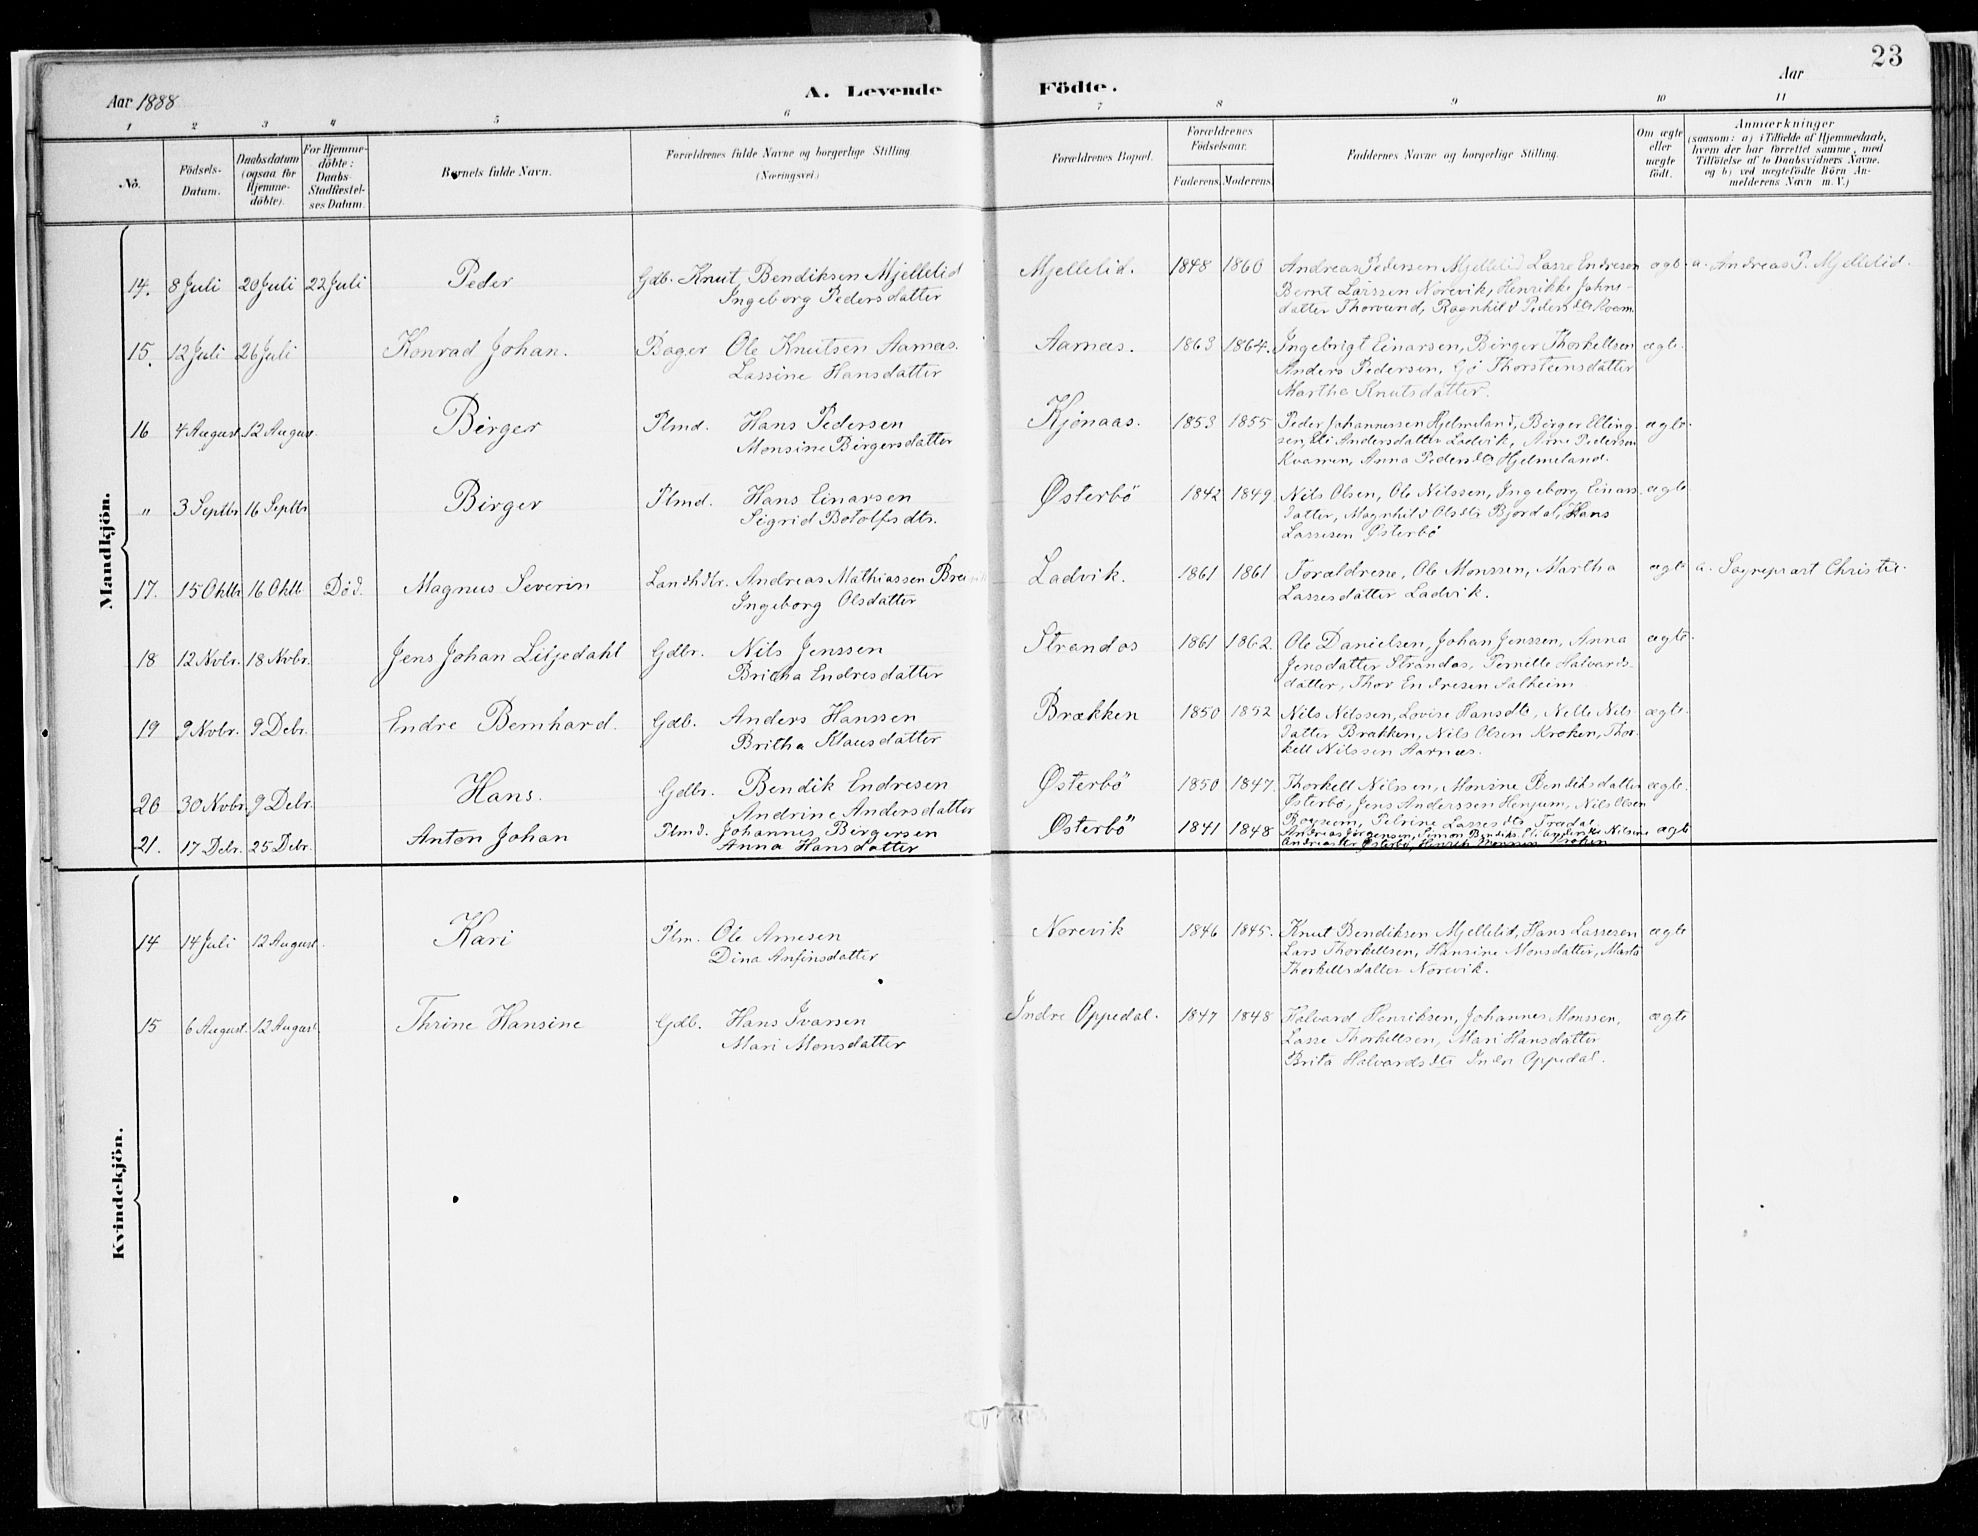 23
Aar 1888
A. Levende Födte.
Aar
1 2 3 4 5 6 7 8 9 10 11
No.
Födsels-Datum.
Daabsdatum (ogsaa for Hjemme-döbte).
For Hjemme-döbte: Daabs-Stadfæstel-ses Datum.
Barnets fulde Navn.
Forældrenes fulde Navne og borgerlige Stilling
(Næringsvei.)
Forældrenes Bopæl.
Forældrenes Födselsaar.
Faderens. Moderens.
Faddernes Navne og borgerlige Stilling.
Om ægte eller uægte födt.
Anmærkninger
(saasom: a) i Tilfælde af Hjemmedaab, hvem der har forrettet samme, med Tilföielse af to Daabsvidners Navne, og b) ved uægtefödte Börn Anmelderens Navn m. V.)
Mandkjön.
14. 8 Juli 20 Juli 22 Juli Peder Gdb. Knut Bendiksen Mjellelid Mjellelid. 1848 1860 Andreas Pedersen Mjellelid Lasse Endresen ægte a. Andreas P. Mjellelid.
Ingeborg Pedersdatter Bernt Larssen Norevik, Henrikke Johns-
datter Thorsund, Ragnhild Pedersdtr
15. 12 Juli 26 Juli Konrad Johan. Bager Ole Knutsen Aarnæs. Aarnæs. 1863 1864. Ingebrigt Einarsen, Birger Thorkellsen ægte.
Lassine Hansdatter Anders Pedersen, Thorsteinsdatter
Marthe Knutsdatter.
16 4 August 12 August. Birger Plmd. Hans Pedersen Kjönaas. 1853 1855 Peder Johannessen Hjelmeland, Birger Elling- ægte.
Monsine Birgersdatter sen, Eli Andersdatter Ladvik, Arne Pedersen
Kvamen, Anna Pedersdtr Hjelmeland.
" 3 Septbr 16 Septbr Birger Plmd. Hans Einarsen Østerbö 1842 1849 Nils Olsen, Ole Nilssen, Ingeborg Einars- ægte
Sigrid Botolfsdtr. datter, Magnhild Olsdtr Bjordal, Hans
Lassesen Østerbö
17. 15 Oktb 16 Oktb Död. Magnus Severin Landhdlr. Andreas Mathiassen Ladvik. 1861 1861 Forældrene, Ole Monssen, Martha ægte a. Sognepræst Christie.
Ingeborg Olsdatter Lassesdatter Ladvik.
18 12 Nvbr. 18 Nvbr. Jens Johan Liljedahl Gdbr. Nils Jenssen Strandos 1861 1862. Ole Danielsen, Johan Jenssen, Anna ægte.
Britha Endresdatter Jensdatter Strandos, Pernille Halvards-
datter, Thor Endresen Salheim
19 9 Nvbr. 9 Debr. Endre Bernhard. Gdb. Anders Hanssen Brækken 1850 1852 Nils Nilssen, Lovise Hansdtr, Nille Nils- ægte.
Britha Klausdatter datter Brækken, Nils Olsen Kroken, Thor-
kell Nilssen Aarnæs.
20 30 Nvbr. 9 Debr. Hans. Gdbr. Bendik Endresen Østerbö 1850 1847. Thorkell Nilssen, Monsine Bendiksdatter ægte.
Andrine Andersdatter Østerbö, Jens Anderssen Henjum, Nils Olsen
Petrine Lassesdtr Tradal.
21. 17 Debr. 25 Debr. Anton Johan Plmd. Johannes Birgersen Østerbö 1841 1848 Andreas Jörgensen, Simon ægte
Anna Hansdatter Østerbö, Henrik Monssen Kroken
Kvindekjön.
14 14 Juli 12 August. Kari Plm. Ole Arnesen Norevik 1846 1845. Knut Bendiksen Mjellelid, Hans Lassesen ægte
Dina Anfinsdatter Lars Thorkellsen, Hansine Monsdatter, Marta
Thorkellsdatter Norevik.
15 6 August. 12 August. Thrine Hansine Gdb. Hans Ivarsen Indre Oppedal. 1847 1848 Halvard Henriksen, Johannes Monssen, ægte
Mari Monsdatter Lasse Thorkellsen, Mari Hansdatter
Brita Halvardsdtr Indr Oppedal.